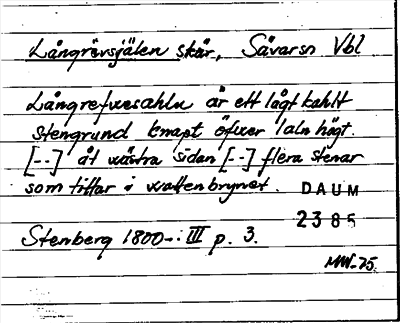 Långrevsjälen skär, Sävar sn Vbl
Långrefwesahln är ett lågt kahlt
stengrund knapt öfwer 1 aln högt.
[--] åt wästra sidan [--] flera stenar
som tittar i wattenbrynet. DAUM
2385
Stenberg 1800-: III p. 3.
MW-75